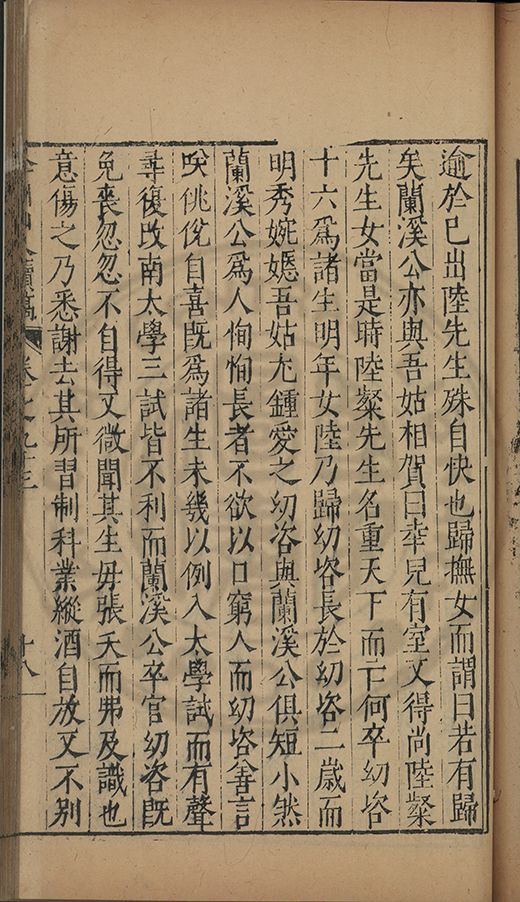 逾於己出陸先生殊自快也歸撫女而謂曰若有歸
矣蘭溪公亦與吾姑相賀曰幸兒有室又得尚陸粲
先生女當是時陸粲先生名重天下而亡何卒幼咨
十六爲諸生明年女陸乃歸幼咨長於幼咨二歲而
明秀婉嫕吾姑尤鍾愛之幼咨與蘭溪公俱短小然
蘭溪公爲人恂恂長者不欲以口窮人而幼咨善言
咲佻侻自喜旣爲諸生未幾以例入太學試而有聲
尋復改南太學三試皆不利而蘭溪公卒官幼咨旣
免喪忽忽不自得又微聞其生毋張夭而弗及識也
意傷之乃悉謝去其所習制科業縱酒自放又不別
續稿 卷之九十三 十八